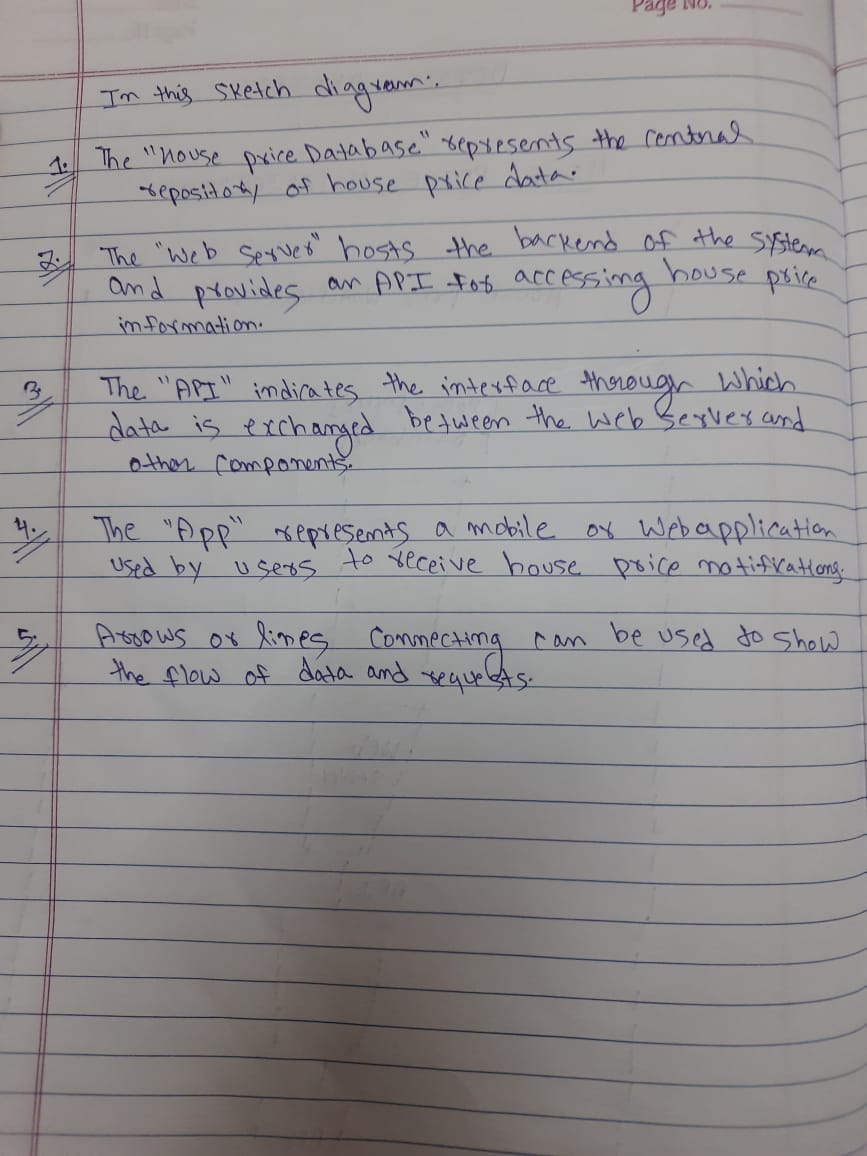 Page No.
In this Sketch diagram:.
1. The "house price Database" represents the central
repository of house price data.
2. The "Web Server" hosts the backend of the system
and provides an API for accessing house price
information.
3. The "API" indicates the interface thorough which
data is exchanged between the web Server and
other components.
4. The "App" represents a mobile or Web application
used by users to receive house price notifications.
5. Arrows or lines connecting can be used to show
the flow of data and requests.